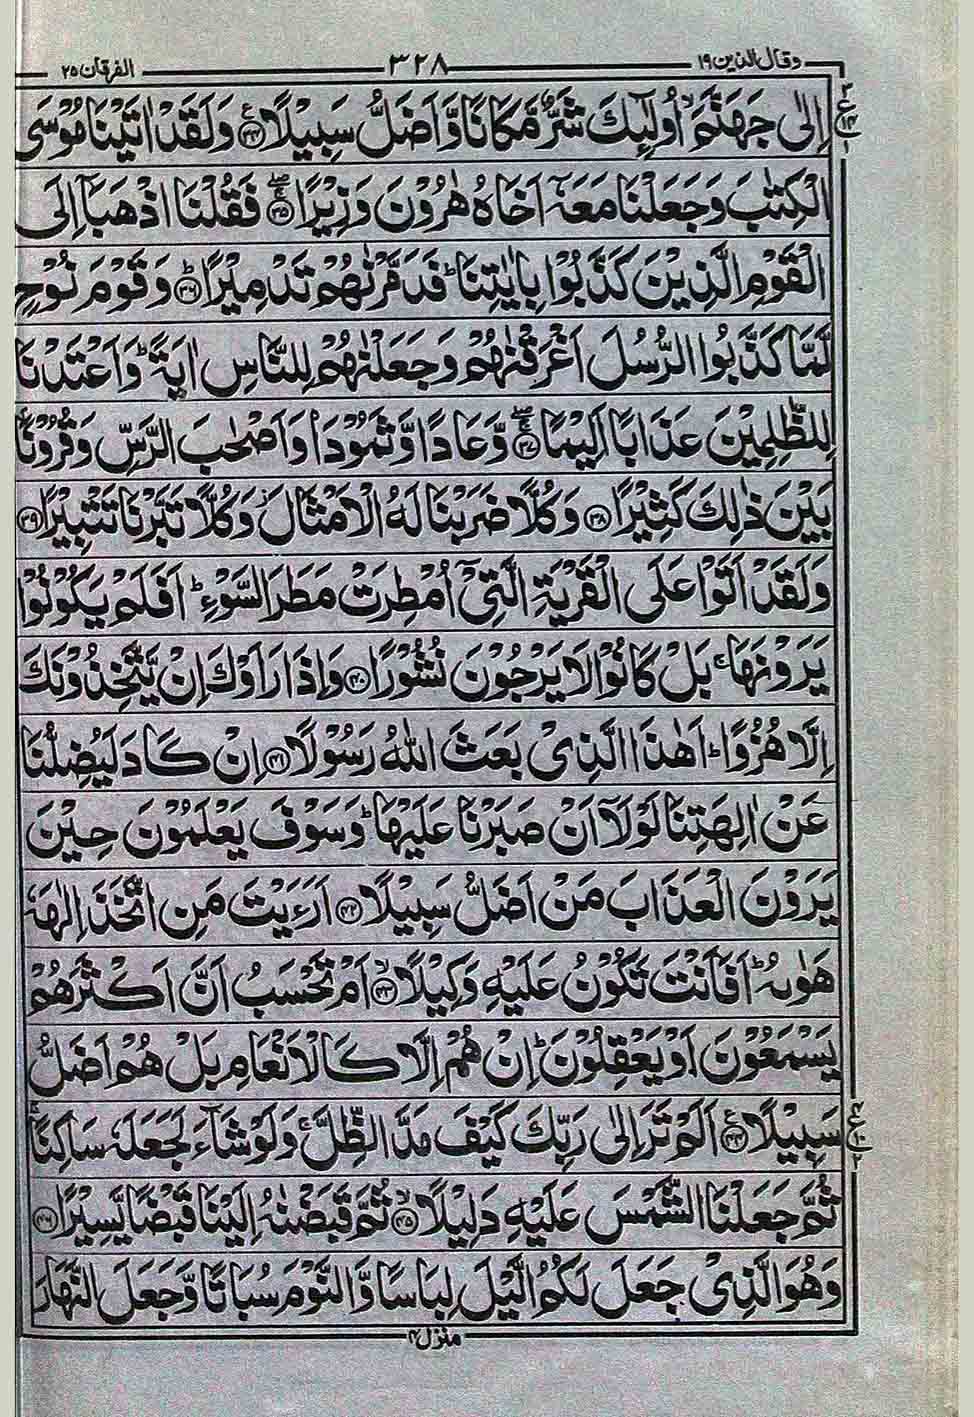 وقال الذین ۱۹ ۳۲۸ الفرقان ۲۵
اِلٰى جَهَنَّمَ ۙ اُولٰٓئِكَ شَرٌّ مَّكَانًا وَّاَضَلُّ سَبِيْلًا ۟ع ﴿۳۴﴾ وَلَقَدْ اٰتَيْنَا مُوْسَى
الْكِتٰبَ وَجَعَلْنَا مَعَهٗۤ اَخَاهُ هٰرُوْنَ وَزِيْرًا ﴿۳۵﴾ فَقُلْنَا اذْهَبَاۤ اِلَى
الْقَوْمِ الَّذِيْنَ كَذَّبُوْا بِاٰيٰتِنَا ؕ فَدَمَّرْنٰهُمْ تَدْمِيْرًا ؕ﴿۳۶﴾ وَقَوْمَ نُوْحٍ
لَّمَّا كَذَّبُوا الرُّسُلَ اَغْرَقْنٰهُمْ وَجَعَلْنٰهُمْ لِلنَّاسِ اٰيَةً ؕ وَاَعْتَدْنَا
لِلظّٰلِمِيْنَ عَذَابًا اَلِيْمًا ﴿۳۷﴾ وَّعَادًا وَّثَمُوْدَا۟ وَاَصْحٰبَ الرَّسِّ وَقُرُوْنًۢا
بَيْنَ ذٰلِكَ كَثِيْرًا ﴿۳۸﴾ وَكُلًّا ضَرَبْنَا لَهُ الْاَمْثَالَ ؗ وَكُلًّا تَبَّرْنَا تَتْبِيْرًا ﴿۳۹﴾
وَلَقَدْ اَتَوْا عَلَى الْقَرْيَةِ الَّتِيْۤ اُمْطِرَتْ مَطَرَ السَّوْءِ ؕ اَفَلَمْ يَكُوْنُوْا
يَرَوْنَهَا ۚ بَلْ كَانُوْا لَا يَرْجُوْنَ نُشُوْرًا ﴿۴۰﴾ وَاِذَا رَاَوْكَ اِنْ يَّتَّخِذُوْنَكَ
اِلَّا هُزُوًا ؕ اَهٰذَا الَّذِيْ بَعَثَ اللّٰهُ رَسُوْلًا ﴿۴۱﴾ اِنْ كَادَ لَيُضِلُّنَا
عَنْ اٰلِهَتِنَا لَوْلَاۤ اَنْ صَبَرْنَا عَلَيْهَا ؕ وَسَوْفَ يَعْلَمُوْنَ حِيْنَ
يَرَوْنَ الْعَذَابَ مَنْ اَضَلُّ سَبِيْلًا ﴿۴۲﴾ اَرَءَيْتَ مَنِ اتَّخَذَ اِلٰهَهٗ
هَوٰىهُ ؕ اَفَاَنْتَ تَكُوْنُ عَلَيْهِ وَكِيْلًا ۙ﴿۴۳﴾ اَمْ تَحْسَبُ اَنَّ اَكْثَرَهُمْ
يَسْمَعُوْنَ اَوْ يَعْقِلُوْنَ ؕ اِنْ هُمْ اِلَّا كَالْاَنْعَامِ بَلْ هُمْ اَضَلُّ
سَبِيْلًا ۟ع ﴿۴۴﴾ اَلَمْ تَرَ اِلٰى رَبِّكَ كَيْفَ مَدَّ الظِّلَّ ۚ وَلَوْ شَآءَ لَجَعَلَهٗ سَاكِنًا ۚ
ثُمَّ جَعَلْنَا الشَّمْسَ عَلَيْهِ دَلِيْلًا ۙ﴿۴۵﴾ ثُمَّ قَبَضْنٰهُ اِلَيْنَا قَبْضًا يَّسِيْرًا ﴿۴۶﴾
وَهُوَ الَّذِيْ جَعَلَ لَكُمُ الَّيْلَ لِبَاسًا وَّالنَّوْمَ سُبَاتًا وَّجَعَلَ النَّهَارَ
منزل ۴